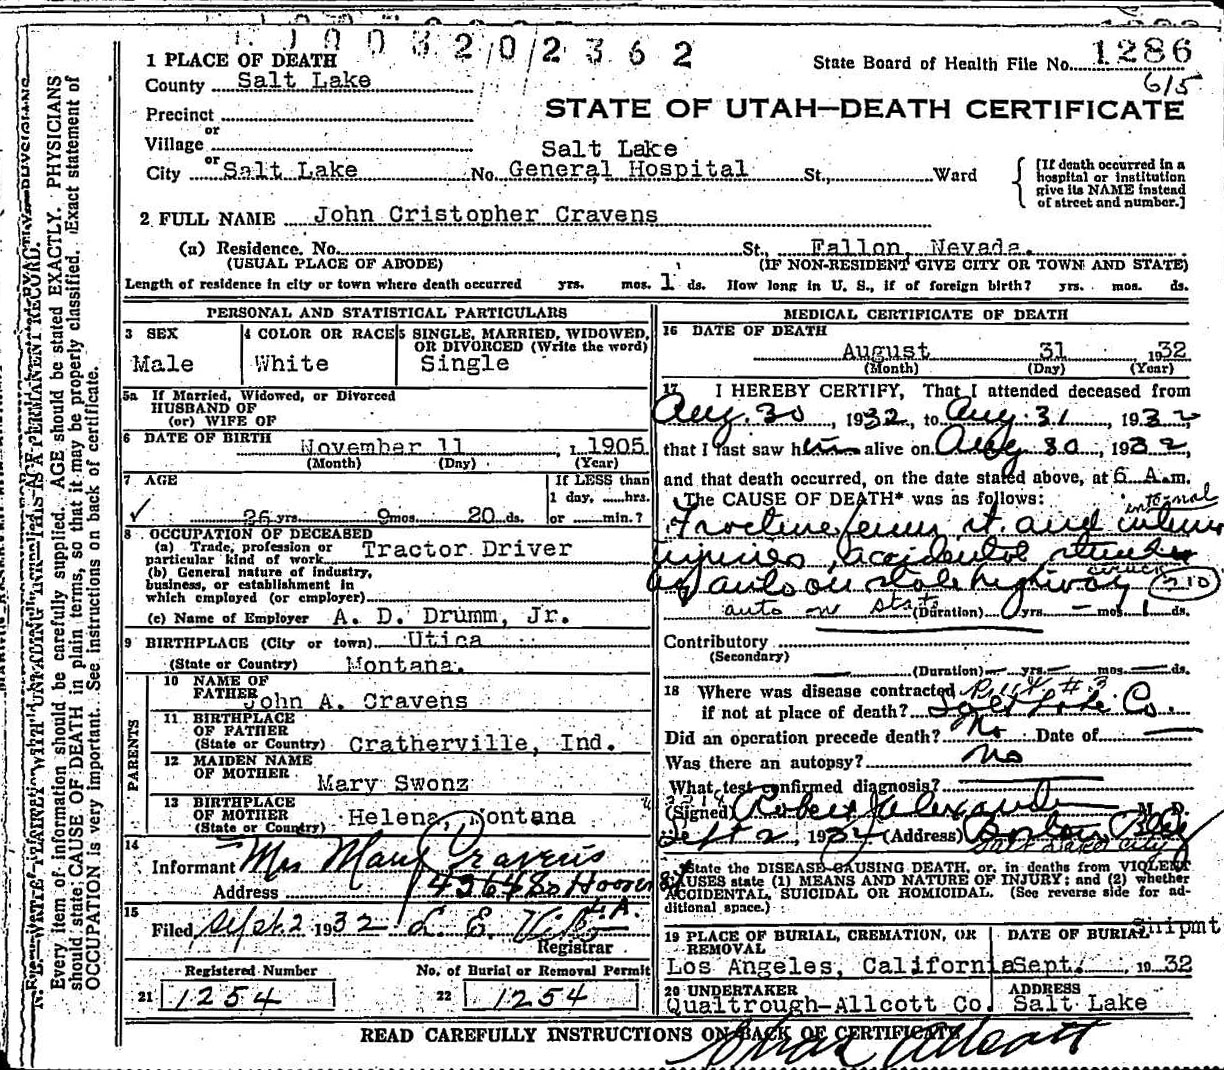 1003202362
1 PLACE OF DEATH
State Board of Health File No. 1286
County Salt Lake
615
STATE OF UTAH—DEATH CERTIFICATE
Precinct
or
Village
Salt Lake
or
City Salt Lake No. General Hospital St., Ward
[If death occurred in a
hospital or institution
give its NAME instead
of street and number.]
2 FULL NAME John Cristopher Cravens
(a) Residence. No. St., Fallon, Nevada.
(USUAL PLACE OF ABODE) (IF NON-RESIDENT GIVE CITY OR TOWN AND STATE)
Length of residence in city or town where death occurred yrs. mos. 1 ds. How long in U. S., if of foreign birth? yrs. mos. ds.
PERSONAL AND STATISTICAL PARTICULARS
3 SEX
Male
4 COLOR OR RACE
White
5 SINGLE, MARRIED, WIDOWED,
OR DIVORCED (Write the word)
Single
5a If Married, Widowed, or Divorced
HUSBAND OF
(or) WIFE OF
6 DATE OF BIRTH
November 11, 1905
(Month) (Day) (Year)
7 AGE
26 yrs. 9 mos. 20 ds.
If LESS than
1 day, hrs.
or min.?
8 OCCUPATION OF DECEASED
(a) Trade, profession or
particular kind of work Tractor Driver
(b) General nature of industry,
business, or establishment in
which employed (or employer)
(c) Name of Employer A. D. Drumm, Jr.
9 BIRTHPLACE (City or town) Utica
(State or Country) Montana.
PARENTS
10 NAME OF
FATHER
John A. Cravens
11 BIRTHPLACE
OF FATHER
(State or Country) Cratherville, Ind.
12 MAIDEN NAME
OF MOTHER
Mary Swonz
13 BIRTHPLACE
OF MOTHER
(State or Country) Helena, Montana
14
Informant Mrs Mary Cravens
Address 4364 So Hoover
15
Filed Sept. 2 1932 L. E.
Registrar
Registered Number No. of Burial or Removal Permit
21 1254 22 1254
MEDICAL CERTIFICATE OF DEATH
16 DATE OF DEATH
August 31, 1932
(Month) (Day) (Year)
17 I HEREBY CERTIFY, That I attended deceased from
Aug. 30, 1932, to Aug. 31, 1932
that I last saw him alive on Aug 30, 1932,
and that death occurred, on the date stated above, at 6 A.m.
The CAUSE OF DEATH* was as follows:
internal
Fracture femur rt. and internal
injuries, accidental struck
struck
by auto on state highway 210
auto on state
(Duration) yrs. mos. 1 ds.
Contributory
(Secondary)
(Duration) yrs. mos. ds.
18 Where was disease contracted
if not at place of death? Salt Lake Co.
Did an operation precede death? No Date of
Was there an autopsy? No
What test confirmed diagnosis?
(Signed) Robert Alexander M. D.
Sept 2, 1932 (Address) Boston Bldg
Salt Lake City
*State the DISEASE CAUSING DEATH, or, in deaths from VIOLENT
CAUSES state (1) MEANS AND NATURE OF INJURY; and (2) whether
ACCIDENTAL, SUICIDAL OR HOMICIDAL. (See reverse side for ad-
ditional space.)
19 PLACE OF BURIAL, CREMATION, OR
REMOVAL
Los Angeles, California
DATE OF BURIAL
Shipmt
Sept. 1932
20 UNDERTAKER
Qualtrough-Allcott Co.
ADDRESS
Salt Lake
READ CAREFULLY INSTRUCTIONS ON BACK OF CERTIFICATE
Every item of information should be carefully supplied. AGE should be stated EXACTLY. PHYSICIANS
should state CAUSE OF DEATH in plain terms, so that it may be properly classified. Exact statement of
OCCUPATION is very important. See instructions on back of certificate.